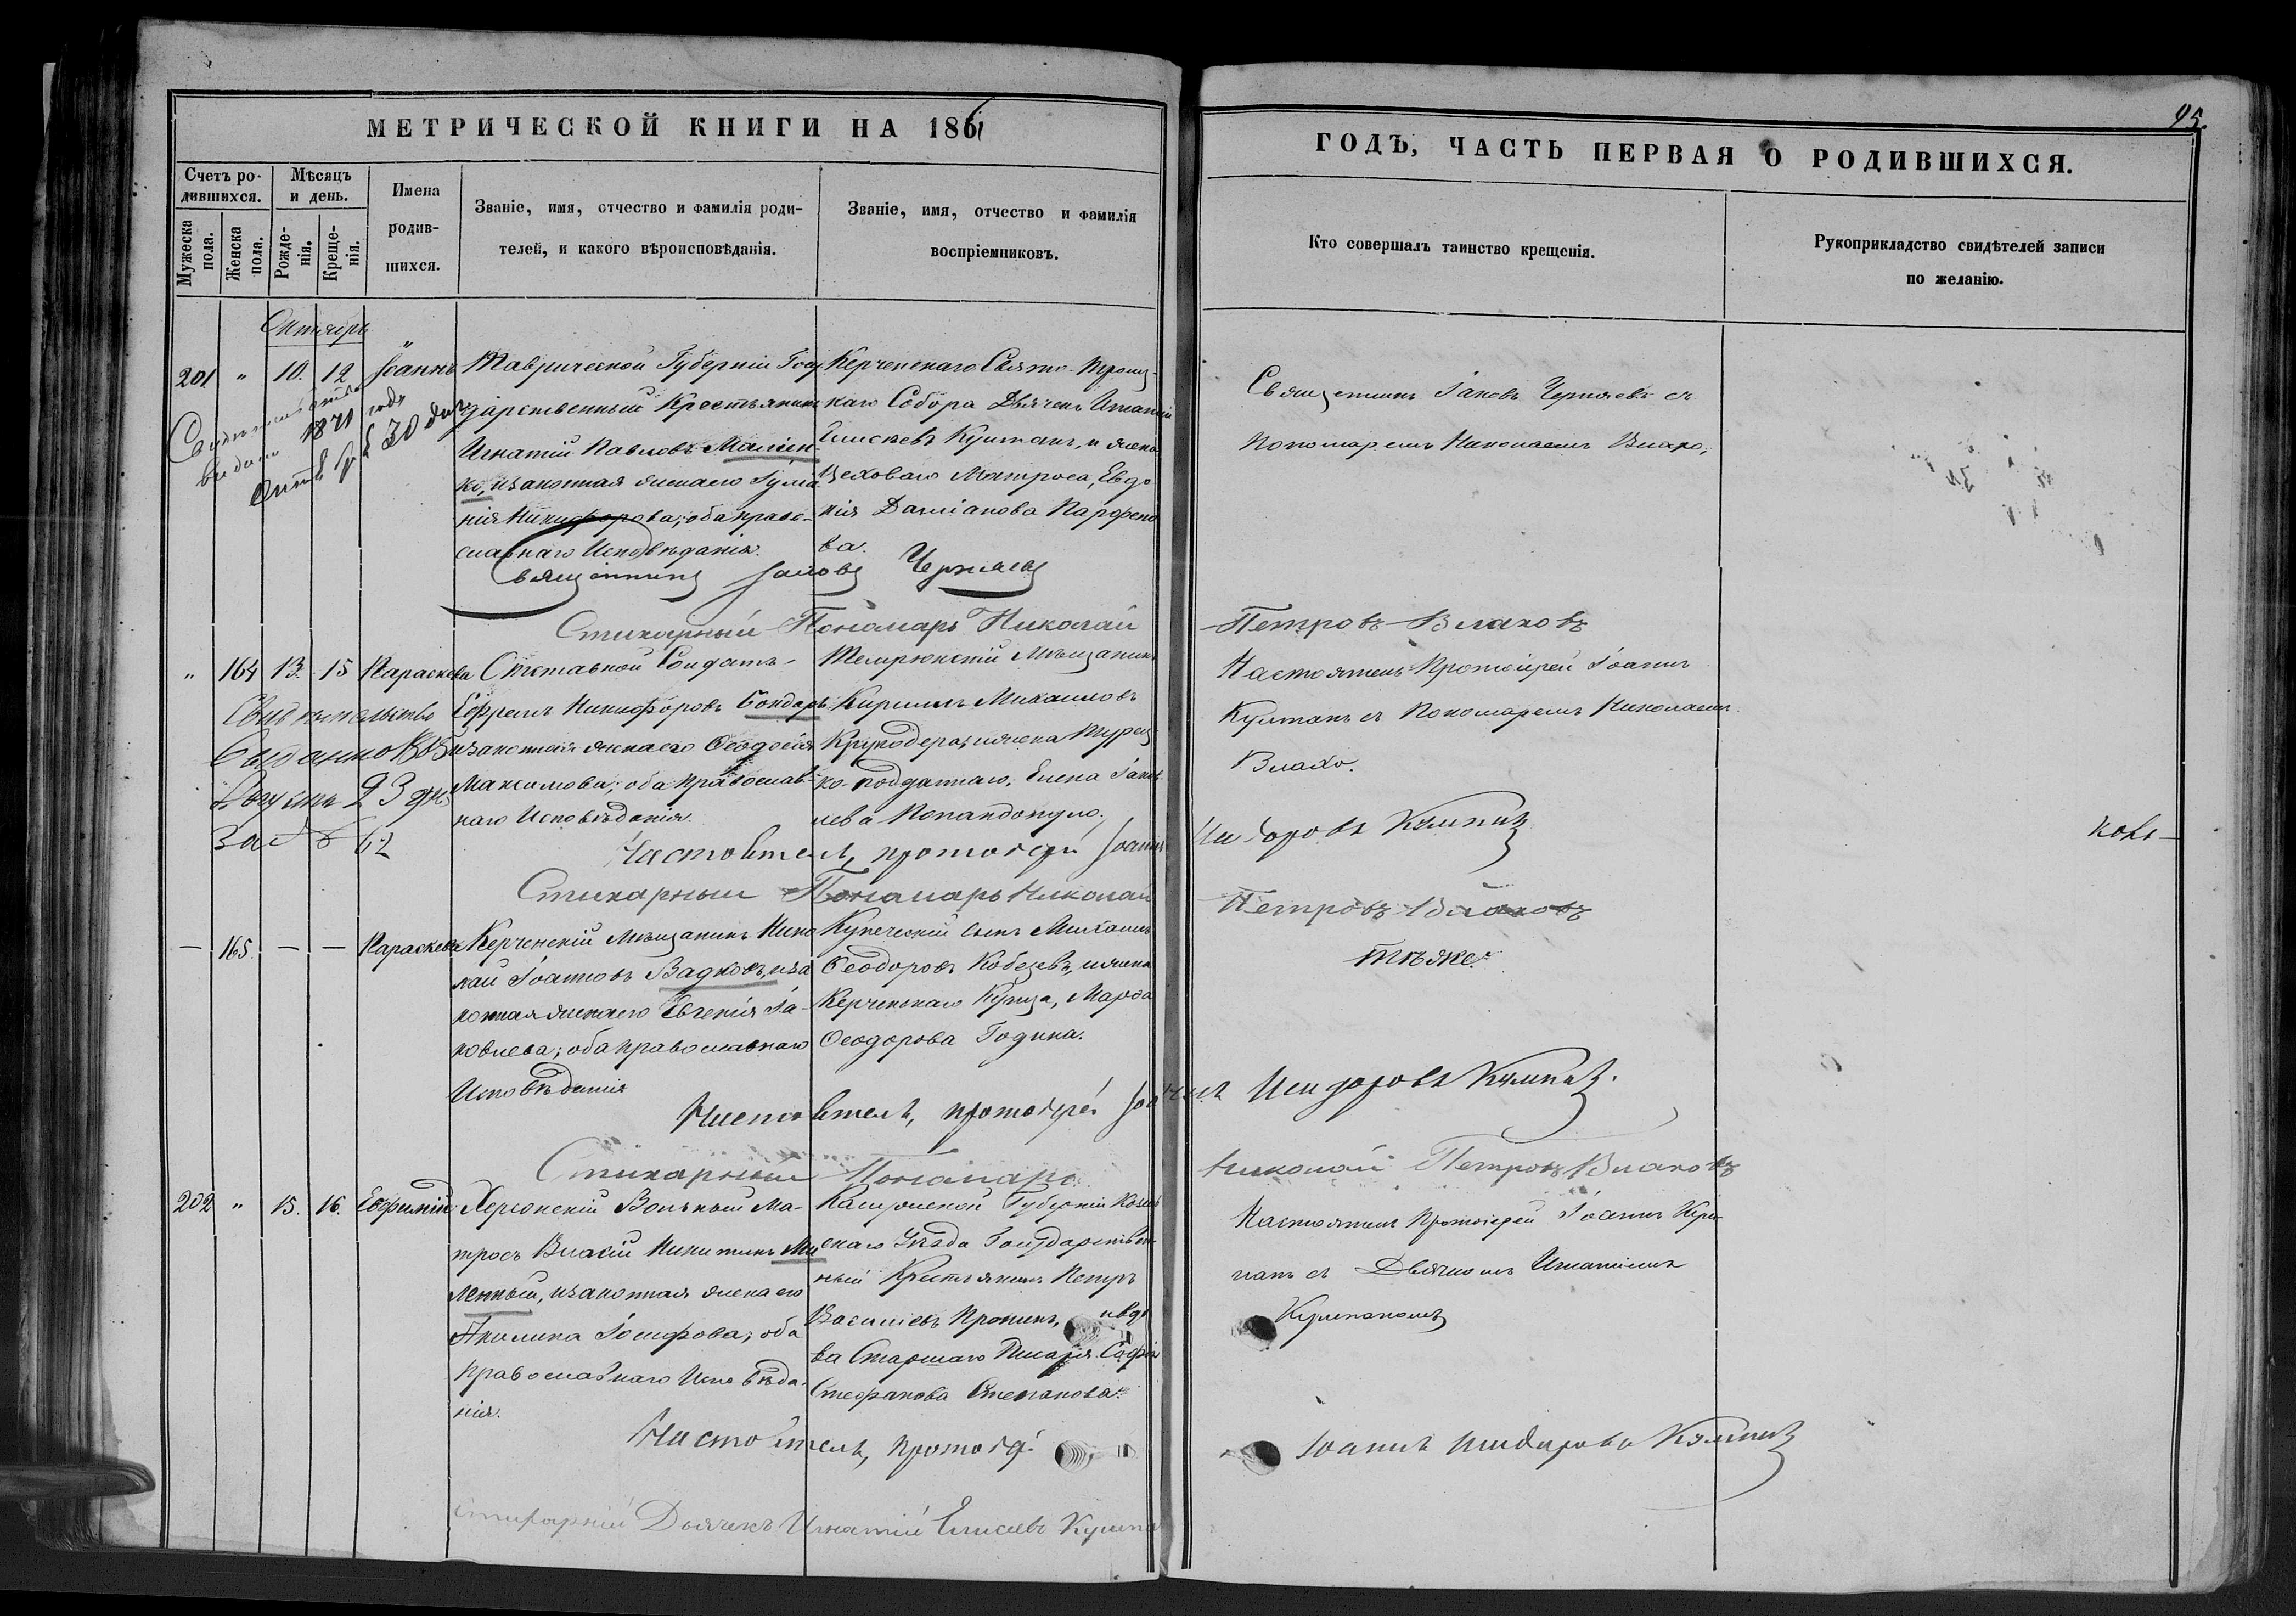 МЕТРИЧЕСКОЙ КНИГИ НА 1861
ГОДЪ, ЧАСТЬ ПЕРВАЯ О РОДИВШИХСЯ.
95.
Счетъ ро-
дившихся.
Мужеска
пола.
Женска
пола.
Мѣсяцъ
и день.
Рожде-
нія.
Креще-
нія.
Имена
родив-
шихся.
Званіе, имя, отчество и фамилія роди-
телей, и какого вѣроисповѣданія.
Званіе, имя, отчество и фамилія
воспріемниковъ.
Кто совершалъ таинство крещенія.
Рукоприкладство свидѣтелей записи
по желанію.
Октябрь
201 " 10. 12 Іоаннъ
1871 года
30 дня
Таврической Губерніи Госу
дарственный Крестьянинъ
Игнатій Павловъ
ко, изаконная жена его
нія Никифорова; оба право-
славнаго Исповѣданія.
Керченскаго Свято-Троиц-
каго Собора Дьячекъ Игнатій
Елисеевъ Купнакъ, и жена
Цеховаго Матроса, Евдо-
кія Даміанова Парфено
ва.
Священникъ Іаковъ Черняевъ съ
Пономаремъ Николаемъ Влахо,
Священникъ Іаковъ Черняевъ
Стихарный Пономарь Николай
Петровъ Влаховъ
" 164 13. 15 Параскева
Свидѣтельство
Августа 23 дня
за № 62
Отставной Солдатъ
Ефремъ Никифоровъ Бондарь
изаконная жена его Ѳеодосія
Максимова; оба православ-
наго Исповѣданія.
Темрюкскій Мѣщанинъ
Кириллъ Михаиловъ
Круподеровъ, и жена Турец
ко-подданнаго, Елена Іаков
лева Попандопуло.
Настоятель Протоіерей Іоаннъ
Купнакъ съ Пономаремъ Николаемъ
Влахо.
Настоятель, протоіерей Іоаннъ
Исидоровъ Купнакъ
Стихарный Пономарь Николай
Петровъ Влаховъ
— 165. — — Параскева
Керченскій Мѣщанинъ Нико
лай Іоанновъ Вадковъ, иза
конная жена его Евгенія Іа-
ковлева; оба православнаго
Исповѣданія
Купеческій сынъ Михаилъ
Ѳеодоровъ Кобезевъ, и жена
Керченскаго Купца, Марѳа
Ѳеодорова Година.
Тѣже.
Настоятель, протоіерей Іоаннъ Исидоровъ Купнакъ.
Стихарный Пономарь
Николай Петровъ Влаховъ
202 " 15. 16. Евфимій
Херсонскій Вольный Ма-
тросъ Власій Никитинъ Ми
ленный, изаконная жена его
Акилина Іосифова; оба
православнаго Исповѣда-
нія.
Калужской Губерніи Козель
скаго Уѣзда Государствен
ный Крестьянинъ Петръ
Васильевъ Пронинъ, и вдо
ва Старшаго Писаря Софія
Стефанова Степанова.
Настоятель Протоіерей Іоаннъ Куп-
накъ съ Дьячкомъ Игнатіемъ
Купнакомъ
Настоятель, протоіер.
Іоаннъ Исидоровъ Купнакъ
Стихарній Дьячекъ Игнатій Елисеевъ Купна